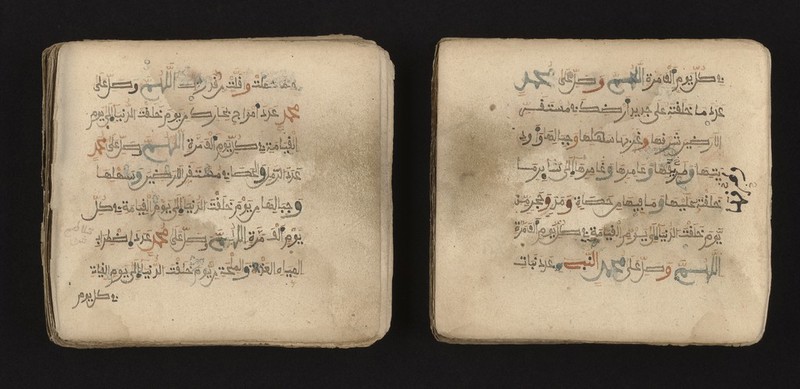 اللهم وصل على
محمد عدد أمواج بحارك من يوم خلقت الدنيا إلى يوم
القيامة في كل يوم ألف مرة اللهم وصل على محمد
عدد الرمل والحصا في مستقر الأرضين وسهلها
وجبالها من يوم خلقت الدنيا إلى يوم القيامة في كل
يوم ألف مرة اللهم وصل على محمد عدد اضطراب
المياه العذبة والملحة من يوم خلقت الدنيا إلى يوم القيامة
في كل يوم
في كل يوم ألف مرة اللهم وصل على محمد
عدد ما خلقته على جديد أرضك في مستقر
الأرضين شرقها وغربها سهلها وجبالها وأود
يتها وطريقها وعامرها وغامرها إلى سائر ما
خلقته عليها وما فيها من حصاة ومدر وحجر من
يوم خلقت الدنيا إلى يوم القيامة في كل يوم ألف مرة
اللهم وصل على محمد النبي عدد نبات